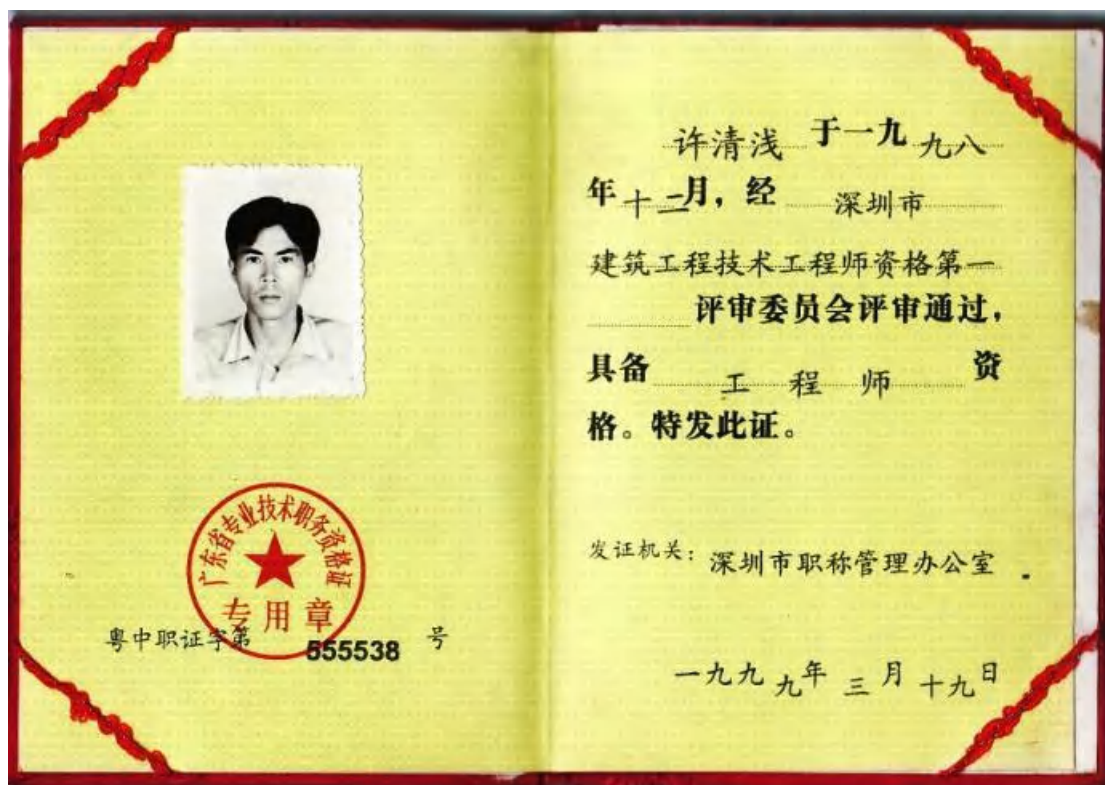 广东省专业技术职务资格证
专用章
粤中职证字第 555538 号
许清浅 于一九 九八
年 十二 月，经 深圳市
建筑工程技术工程师资格第一
评审委员会评审通过，
具备 工 程 师 资
格。特发此证。
发证机关：深圳市职称管理办公室
一九九九年 三 月 十九日